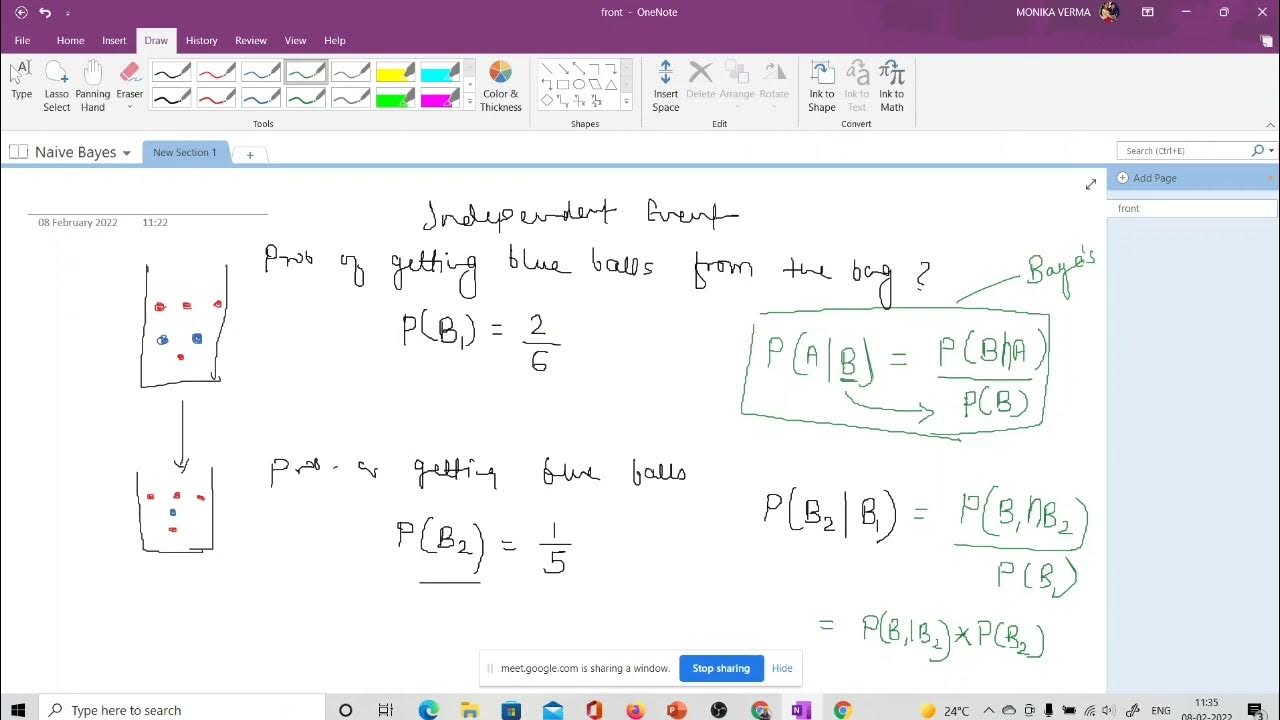 front - OneNote
MONIKA VERMA
File Home Insert Draw History Review View Help
Type
Lasso Select
Panning Hand
Eraser
Color & Thickness
Insert Space
Delete
Arrange
Rotate
Ink to Shape
Ink to Text
Ink to Math
Tools
Shapes
Edit
Convert
Naive Bayes
New Section 1
+
Search (Ctrl+E)
Add Page
front
08 February 2022 11:22
Independent Event
Prob of getting blue balls from the bag ?
Baye's
P(B₁) = 2/6
P(A|B) = P(B∩A)/P(B)
Prob. of getting blue balls
P(B₂) = 1/5
P(B₂|B₁) = P(B₁∩B₂)/P(B₁)
= P(B₁|B₂)*P(B₂)
meet.google.com is sharing a window.
Stop sharing
Hide
Type here to search
24°C
ENG
11:35
08-02-2022